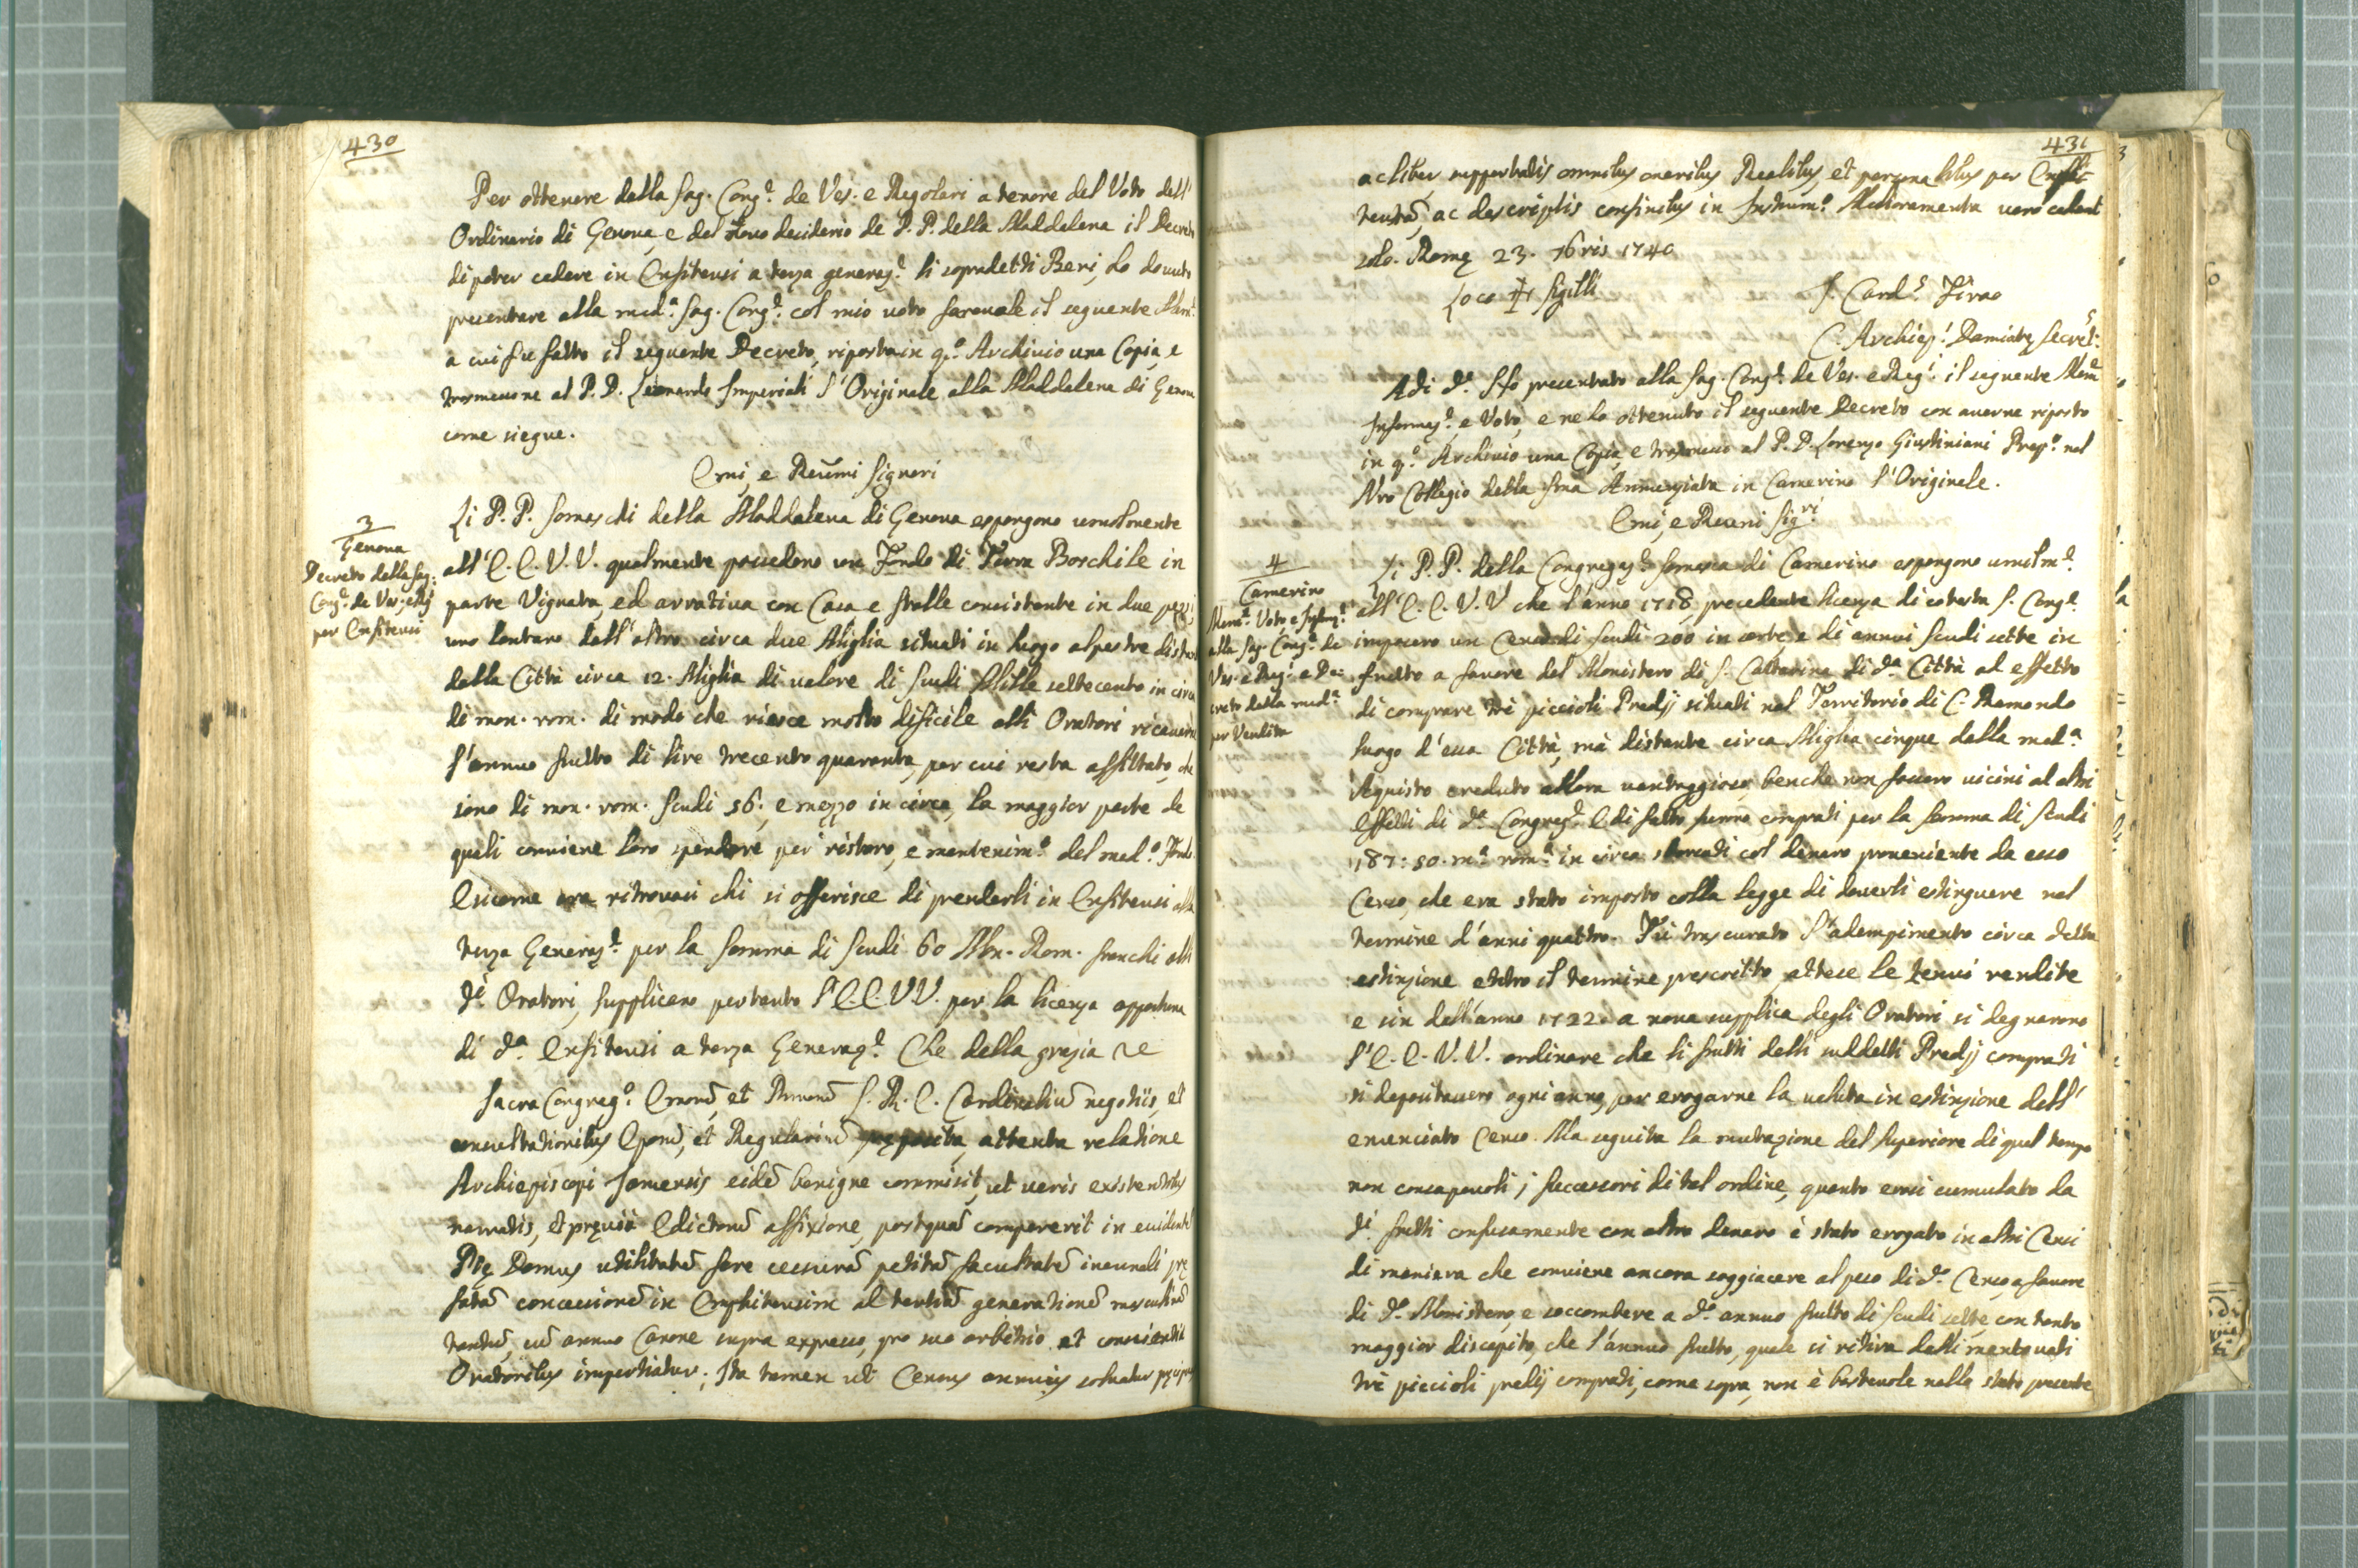 430
Per ottenere dalla Sag. Cong.e de Ves. e Regolari a tenore del Voto dell'
Ordinario di Genova, e del desiderio de P. P. della Maddalena il Decreto
di poter cedere in Enfiteusi a terza generaz.e li sopradetti Beni, ho dovuto
presentare alla med.a Sag. Cong.e col mio voto favorevole il seguente Mem.e
a cui fu fatto il seguente Decreto, riposta in q.o Archivio una Copia, e
trasmessone al P. D. Leonardo Imperiali l'Originale alla Maddalena di Genova
come siegue.
Emi, e Reūmi Signori
3
Genova
Decreto della Sag:
Cong.e de Ves: e Reg
per Enfiteusi
Li P. P. Somaschi della Maddalena di Genova espongono umilmente
all'E. E. V. V. qualmente possedono un Fondo di Terra Boschile in
parte Vignata, ed arrativa con Casa e Stalle consistente in due pezzi,
uno lontano dall'altro circa due Miglia situati in luogo alpestre distante
dalla Città circa 12. Miglia di valore di Scudi Mille settecento in circa
di mon. rom. di modo che riesce molto dificile alli Oratori ricavarne
l'annuo frutto di lire trecento quaranta, per cui resta affittato, che
sono di mon. rom. Scudi 56:, e mezzo in circa, la maggior parte de
quali conviene loro spendere per ristoro, e mantenim.o del med.o Fondo
E siccome ora ritrovasi chi si offerisce di prenderli in Enfiteusi alla
terza Generaz.e per la somma di Scudi 60 Mon. Rom. franchi alli
d.i Oratori, supplicano pertanto l'E. E. V V. per la licenza opportuna
di d.a Enfiteusi a terza Generaz.e Che della grazia &c
Sacra Congreg.o Emorū, et Rmorū S. R. E. Cardinaliū negotiis, et
consultationibus Eporū, et Regulariū pręposita, attenta relatione
Archiepiscopi Januensis eidē benigne commisit, ut veris existentibus
narratis, et pręviā Edictorū affixione, postquā compererit in evidentē
Ptę Domus utilitatē fore cessurā petitā facultatē ineundi prę
fatā concessionē in Emphiteusim ad tertiā generationē masculinā
tantū, cū annuo Canone supra expresso, pro suo arbitrio et conscientia
Oratoribus impertiatur; Ita tamen ut Census annuus solvatur
431
ac liber supportatis omnibus oneribus Realibus, et personalibus per Emfit-
teutā, ac descriptis confinibus in Instrum.o Melioramenta vero cedant
solo. Romę 23. 9bris 1740
Loco ✠ Sigilli
F. Card.s Firao
C. Archiep.s Damiatę Secret.s
Adi d.o Ho presentato alla Sag. Cong.e de Ves. e Reg.i il seguente Mem.e
Informaz.e, e Voto, e ne ho ottenuto il seguente Decreto con averne riposto
in q.o Archivio una Copia, e trasmesso al P. D. Lorenzo Giustiniani Prep.o nel
Nro Collegio della Sma Annunziata in Camerino l'Originale.
Emi, e Reumi Sig.ri
4
Camerino
Mem.e Voto e Inform.e
alla Sag. Cong.e de
Ves. e Reg.i e De-
creto della med.a
per Vendita
Li P. P. della Congregaz.e Somasca di Camerino espongono umilm.e
all'E. E. V. V che l'anno 1718 precedente licenza di cotesta S. Cong.e
imposero un Censo di Scudi 200 in sorte, e di annui Scudi sette in
frutto a favore del Monistero di S. Catterina di d.a Città ad effetto
di comprare trè piccioli Predj situati nel Territorio di C. Raimondo
luogo d'essa Città, mà distante circa Miglia cinque dalla med.a
Aquisto creduto allora vantaggioso, benche non fossero vicini ad altri
Effetti di d.a Congreg.e E di fatto furono comprati per la somma di Scudi
187: 50. m.a rom.a in circa sborsati col denaro proveniente da esso
Censo, che era stato imposto colla legge di doverli estinguere nel
termine d'anni quattro. Fù trascurato l'adempimento circa detta
estinzione entro il termine prescritto, attese le tenui rendite
e sin dall'anno 1722. a nova supplica degli Oratori si degnarono
l'E. E. V. V. ordinare che li frutti delli suddetti Predj comprati
si depositassero ogni anno, per erogarne la valuta in estinzione dell'
enunciato Censo. Ma seguita la mutazione del Superiore di quel tempo
non consapevoli i successori di tal ordine, quanto erasi cumulato da
d.i frutti confusamente con altro denaro è stato erogato in altri Censi
di maniera che conviene ancora soggiacere al peso di d.o Censo, a favore
di d.o Monistero, e soccombere a d.o annuo frutto di Scudi sette, con tanto
maggior discapito, che l'annuo frutto, quale si ritira dalli mentovati
trè piccioli predij comprati, come sopra, non è bastevole nello stato presente